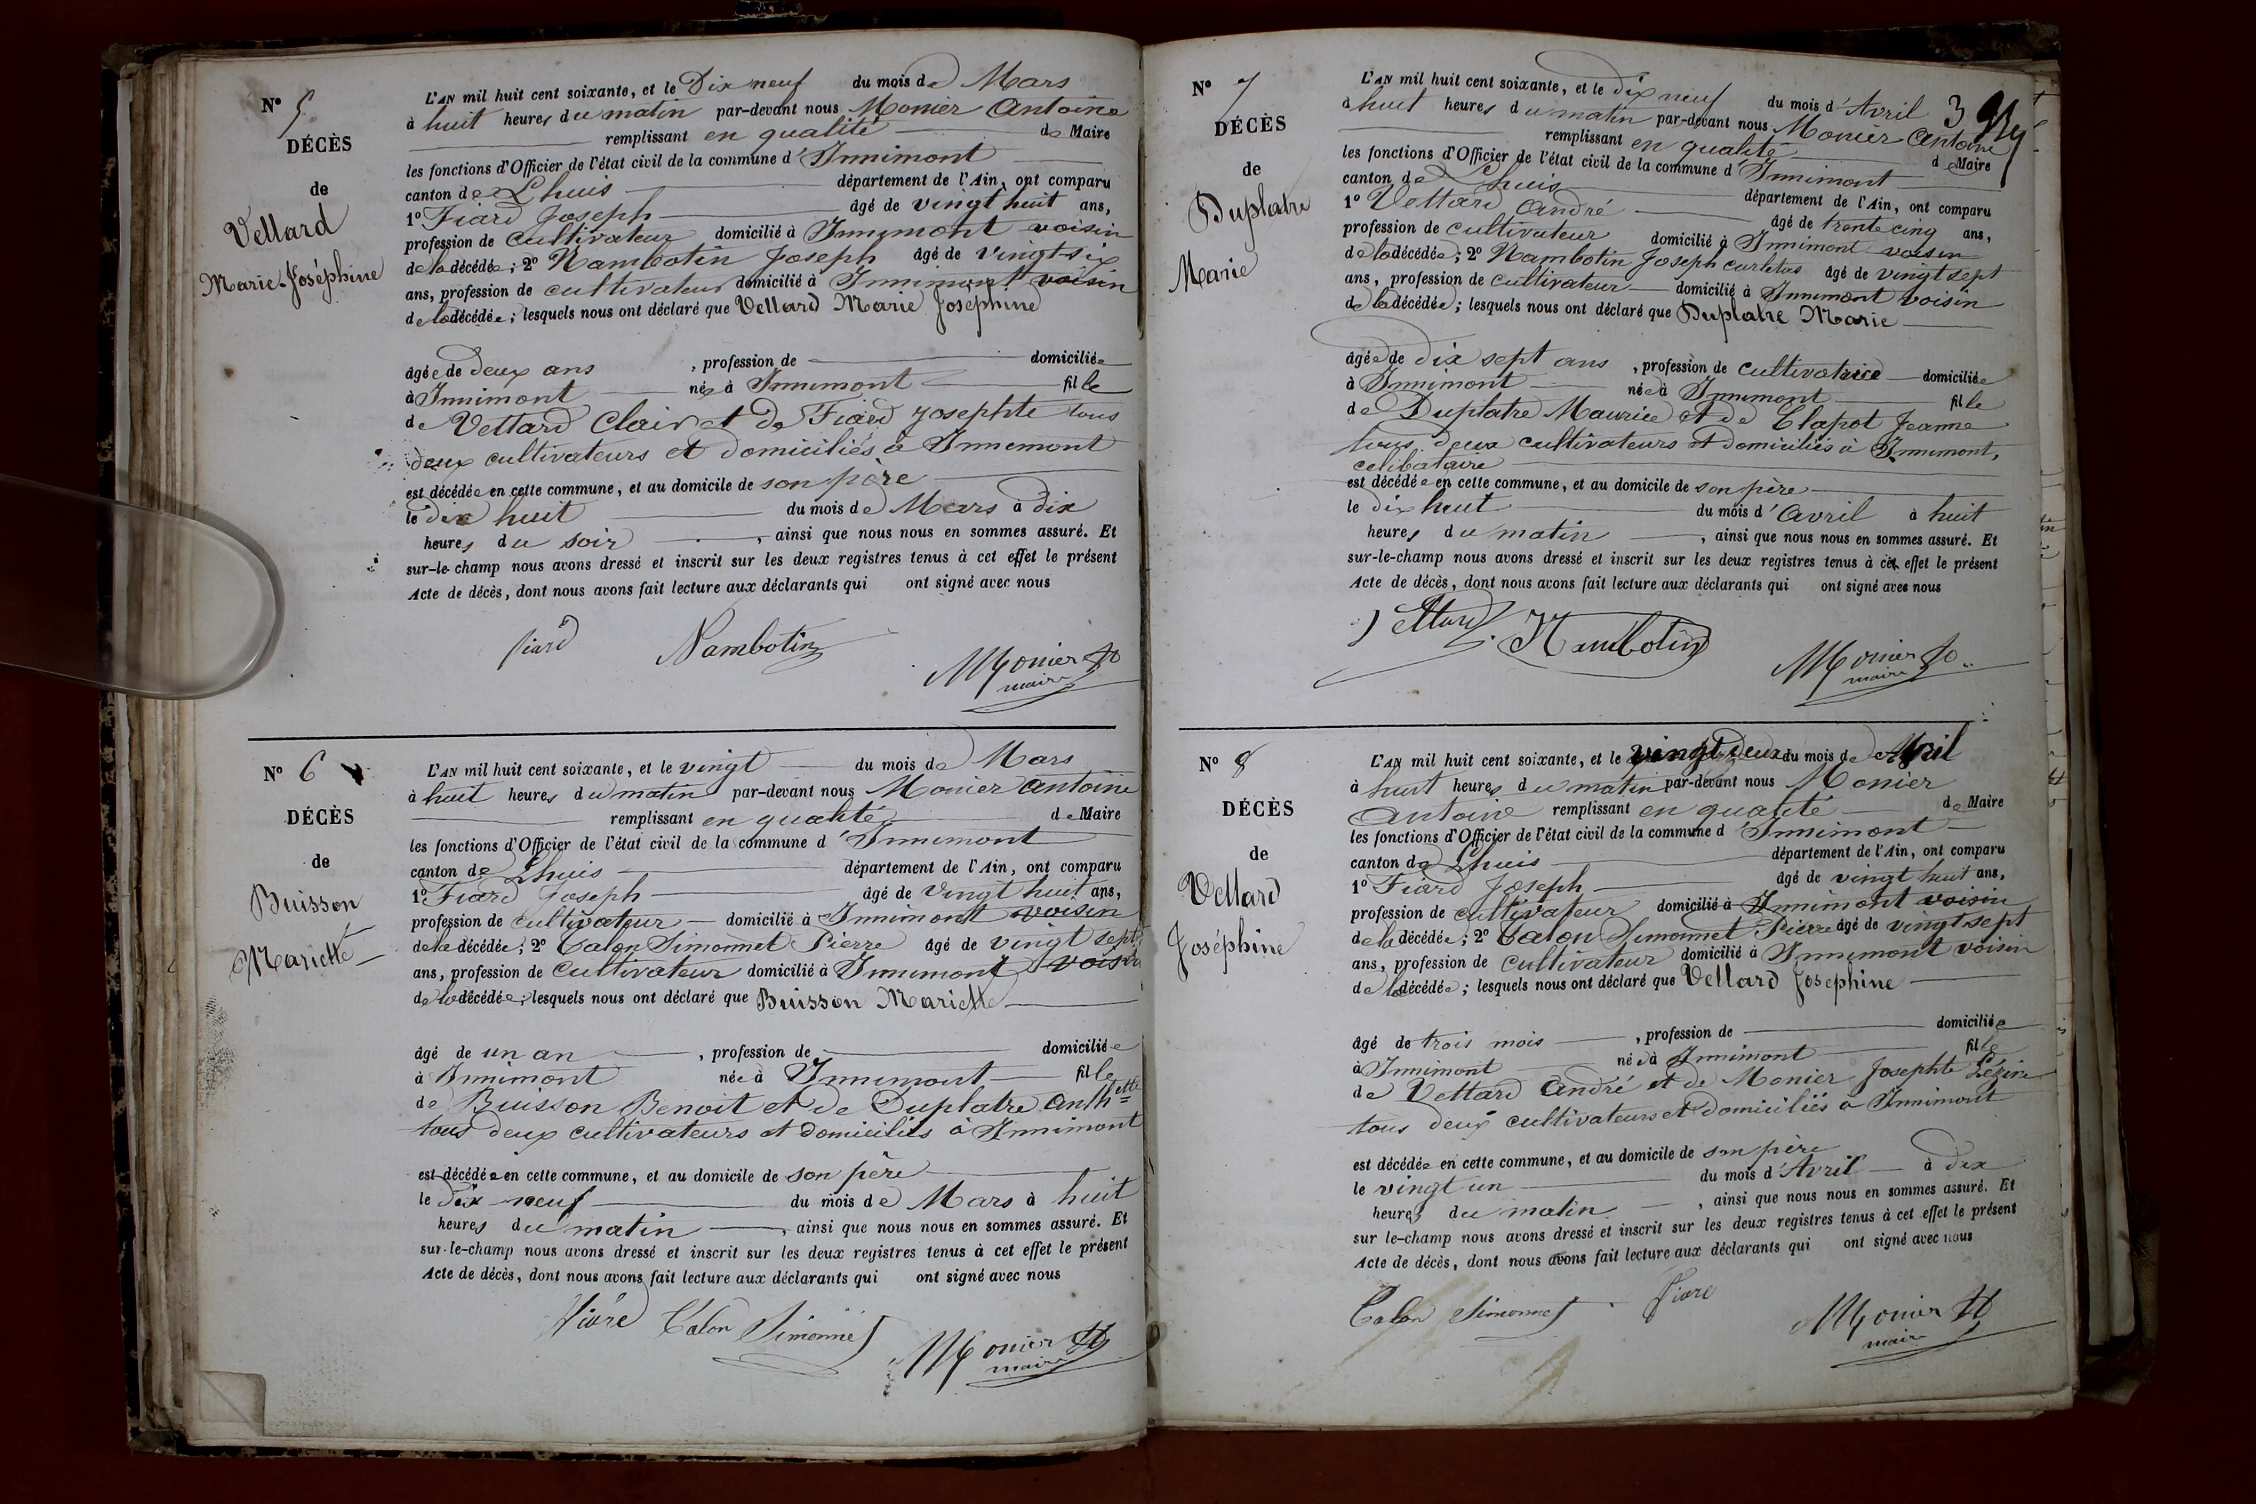 N° 5
DÉCÈS
de
Vettard
Marie-Joséphine
L'AN mil huit cent soixante, et le Dix neuf du mois de Mars
à huit heures du matin par-devant nous Monier Antoine
remplissant en qualité de Maire
les fonctions d'Officier de l'état civil de la commune d'Innimont
canton de Lhuis département de l'Ain, ont comparu
1° Fiard Joseph âgé de vingt huit ans,
profession de cultivateur domicilié à Innimont voisin
de la décédée; 2° Nambotin Joseph âgé de vingt-six
ans, profession de cultivateur domicilié à Innimont voisin
de la décédée; lesquels nous ont déclaré que Vettard Marie Joséphine
âgée de deux ans, profession de domiciliée
à Innimont née à Innimont fille
de Vettard Clair et de Fiard Josephte tous
deux cultivateurs et domiciliés à Innimont
est décédée en cette commune, et au domicile de son père
le dix huit du mois de Mars à dix
heures du soir, ainsi que nous nous en sommes assuré. Et
sur-le-champ nous avons dressé et inscrit sur les deux registres tenus à cet effet le présent
Acte de décès, dont nous avons fait lecture aux déclarants qui ont signé avec nous
fiard Nambotin Monier
maire
N° 6
DÉCÈS
de
Buisson
Mariette
L'AN mil huit cent soixante, et le vingt du mois de Mars
à huit heures du matin par-devant nous Monier Antoine
remplissant en qualité de Maire
les fonctions d'Officier de l'état civil de la commune d'Innimont
canton de Lhuis département de l'Ain, ont comparu
1° Fiard Joseph âgé de vingt huit ans,
profession de cultivateur domicilié à Innimont voisin
de la décédée; 2° Calon Simonnet Pierre âgé de vingt sept
ans, profession de cultivateur domicilié à Innimont voisin
de la décédée; lesquels nous ont déclaré que Buisson Mariette
âgé de un an, profession de domiciliée
à Innimont née à Innimont fille
de Buisson Benoit et de Duplatre Anth.ette
tous deux cultivateurs et domiciliés à Innimont
est décédée en cette commune, et au domicile de son père
le dix neuf du mois de Mars à huit
heures du matin, ainsi que nous nous en sommes assuré. Et
sur-le-champ nous avons dressé et inscrit sur les deux registres tenus à cet effet le présent
Acte de décès, dont nous avons fait lecture aux déclarants qui ont signé avec nous
fiard Calon Simonnet
Monier
maire
3
N° 7
DÉCÈS
de
Duplatre
Marie
L'AN mil huit cent soixante, et le dix neuf du mois d'Avril
à huit heures du matin par-devant nous Monier Antoine
remplissant en qualité de Maire
les fonctions d'Officier de l'état civil de la commune d'Innimont
canton de Lhuis département de l'Ain, ont comparu
1° Vettard André âgé de trente cinq ans,
profession de cultivateur domicilié à Innimont voisin
de la décédée; 2° Nambotin Joseph âgé de vingt sept
ans, profession de cultivateur domicilié à Innimont voisin
de la décédée; lesquels nous ont déclaré que Duplatre Marie
âgée de dix sept ans, profession de cultivatrice domiciliée
à Innimont née à Innimont fille
de Duplatre Maurice et de Clapot Jeanne
tous deux cultivateurs et domiciliés à Innimont,
célibataire
est décédée en cette commune, et au domicile de son père
le dix huit du mois d'Avril à huit
heures du matin, ainsi que nous nous en sommes assuré. Et
sur-le-champ nous avons dressé et inscrit sur les deux registres tenus à cet effet le présent
Acte de décès, dont nous avons fait lecture aux déclarants qui ont signé avec nous
Vettard Nambotin
Monier
maire
N° 8
DÉCÈS
de
Vettard
Joséphine
L'AN mil huit cent soixante, et le vingt deux du mois de Avril
à huit heures du matin par-devant nous Monier
Antoine remplissant en qualité de Maire
les fonctions d'Officier de l'état civil de la commune d'Innimont
canton de Lhuis département de l'Ain, ont comparu
1° Fiard Joseph âgé de vingt huit ans,
profession de cultivateur domicilié à Innimont voisin
de la décédée; 2° Calon Simonnet Pierre âgé de vingt sept
ans, profession de cultivateur domicilié à Innimont voisin
de la décédée; lesquels nous ont déclaré que Vettard Joséphine
âgé de trois mois, profession de domiciliée
à Innimont née à Innimont fille
de Vettard André et de Monier Josephte
tous deux cultivateurs et domiciliés à Innimont
est décédée en cette commune, et au domicile de son père
le vingt un du mois d'Avril à dix
heures du matin, ainsi que nous nous en sommes assuré. Et
sur le-champ nous avons dressé et inscrit sur les deux registres tenus à cet effet le présent
Acte de décès, dont nous avons fait lecture aux déclarants qui ont signé avec nous
Calon Simonnet fiard
Monier
maire